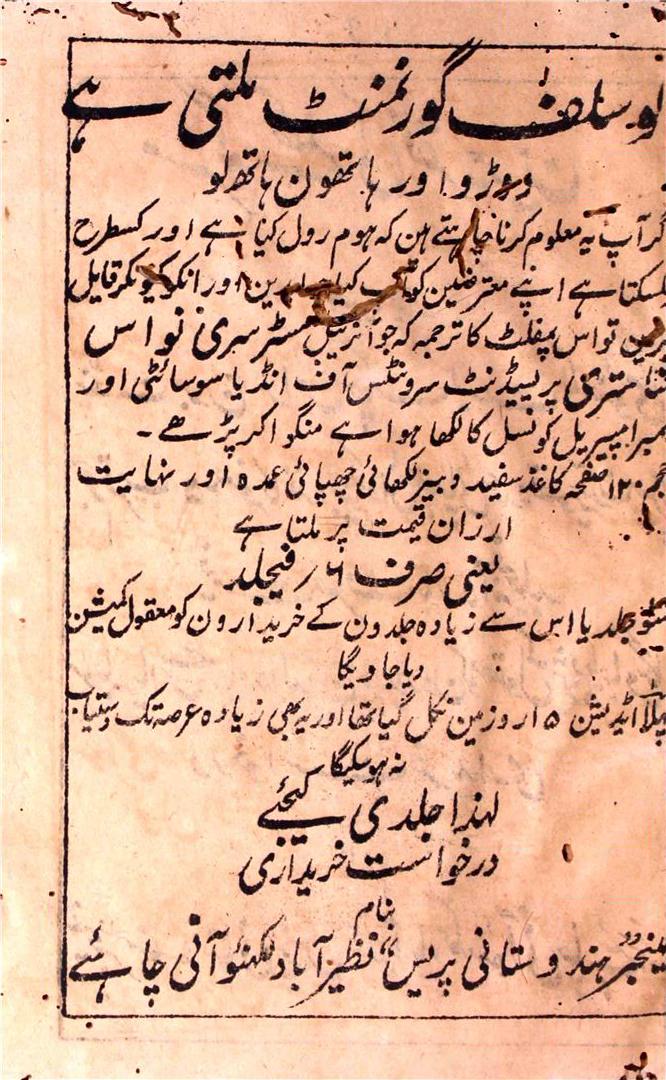 لو سلف گورنمنٹ ملتی ہے
دوڑو اور ہاتھون ہاتھ لو
گر آپ یہ معلوم کرنا چاہتے ہن کہ ہوم رول کیا ہے اور کسطرح
ملسکتا ہے اپنے معترضین کو کیا اور انکو کیونکر قایل
کرین تو اس پمفلٹ کا ترجمہ کہ جو آنریبل مسٹر سری نواس
شاستری پریسیڈنٹ سرونٹس آف انڈیا سوسائٹی اور
ممبر امپیریل کونسل کا لکھا ہوا ہے منگوا کر پڑھے ۔
حجم ۱۲۰ صفحہ کاغذ سفید دبیز لکھائی چھپائی عمدہ اور نہایت
ارزان قیمت پر ملتا ہے
یعنی صرف ۶ ر فیجلد
جلد یا اس سے زیادہ جلدون کے خریدارون کو معقول کمیشن
دیا جاویگا
پہلا اڈیشن ۱۵ روز مین نکل گیا تھا اور یہ بھی زیادہ عرصہ تک دستیاب
نہ ہوسکیگا
لہذا جلدی کیجئے
درخواست خریداری
بنام
منیجر ہندوستانی پریس نظیرآباد لکھنؤ آنی چاہئے